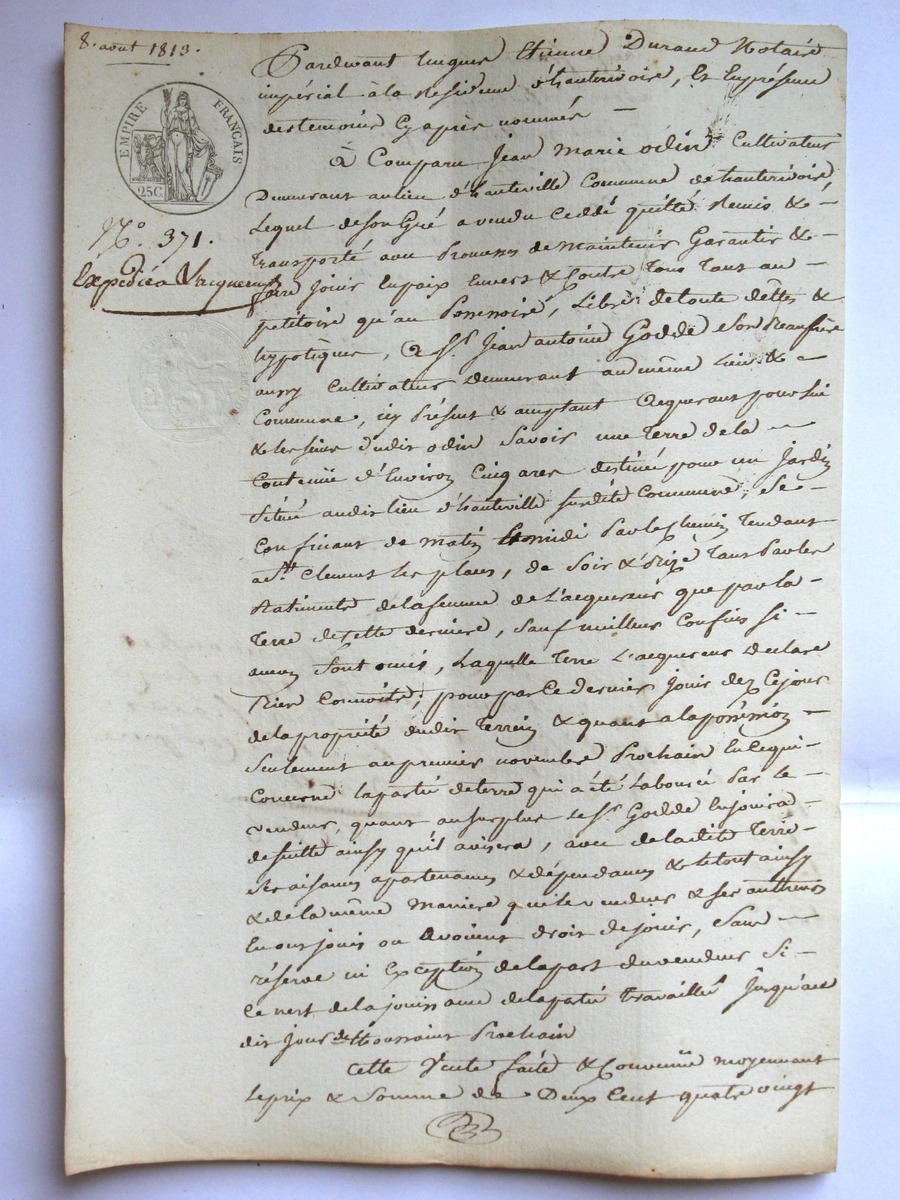 8. aout 1813.
EMPIRE FRANÇAIS
25C
N.° 371.
Expédié a
Pardevant Etienne Durand Notaire
impérial à la Residence d'hauterivoire, & Enpresence
destemoins Cyaprès nommés —
à Comparu Jean Marie odin Cultivateur
Demeurant aulieu d'hauteville Commune de hauterivoire,
Lequel deson Gré avendu Ceddé quitté Remis & -
Transporté avec Promesses de Maintenir Garantir & -
faire jouir Enpaix Envers & Contre Tous Tant au
petitoire qu'au Possessoire, Libre detoute dêttes &
hypotèques, à S.r Jean antoine Godde son Beaufrère
aussy Cultivateur Demeurant au même Lieu & -
Commune, icy Présent & acceptant acquerant pour lui
& les siens dudit odin Savoir une Terre de la —
Contenüe d'Environ Cinq ares destinée pour un Jardin
Situé audit lieu d'hauteville susdite Commune, Se -
Confinant de matin & midi Par le Chemin Tendant
a S.t Clement les places, de Soir & Bize Tant Par les
Batiments de la femme de L'acquereur que par la -
Terre de Cette derniere, Sauf meilleurs Confins Si -
aucun Sont omis, Laquelle Terre L'acquereur declare
Bien Connoitre; pour par Ce dernier Jouir dez Cejour
de la proprieté dudit Terrein & quant a la possession -
Seulement au premier novembre Prochain En Cequi -
Concerne la partie deterre qui a été Labouré Par le -
vendeur, quant au surplus Le S.r Godde En jouira -
desuitte ainsy qu'il avisera, avec de la dite Terre -
Ses aisances apartenances & dépendances & le tout ainsy
& de la même Maniere que le vendeur & ses autheurs
En ont joui ou avoient droit de jouir, Sans —
réserve ni Exception de la part du vendeur Si -
Ce n'est de la jouissance de la partie travaillé Jusqu'au
dit jour de Toussaint Prochain
Cette Vente faite & Convenüe moyennant
Le prix & Somme de Deux Cent quatre vingt